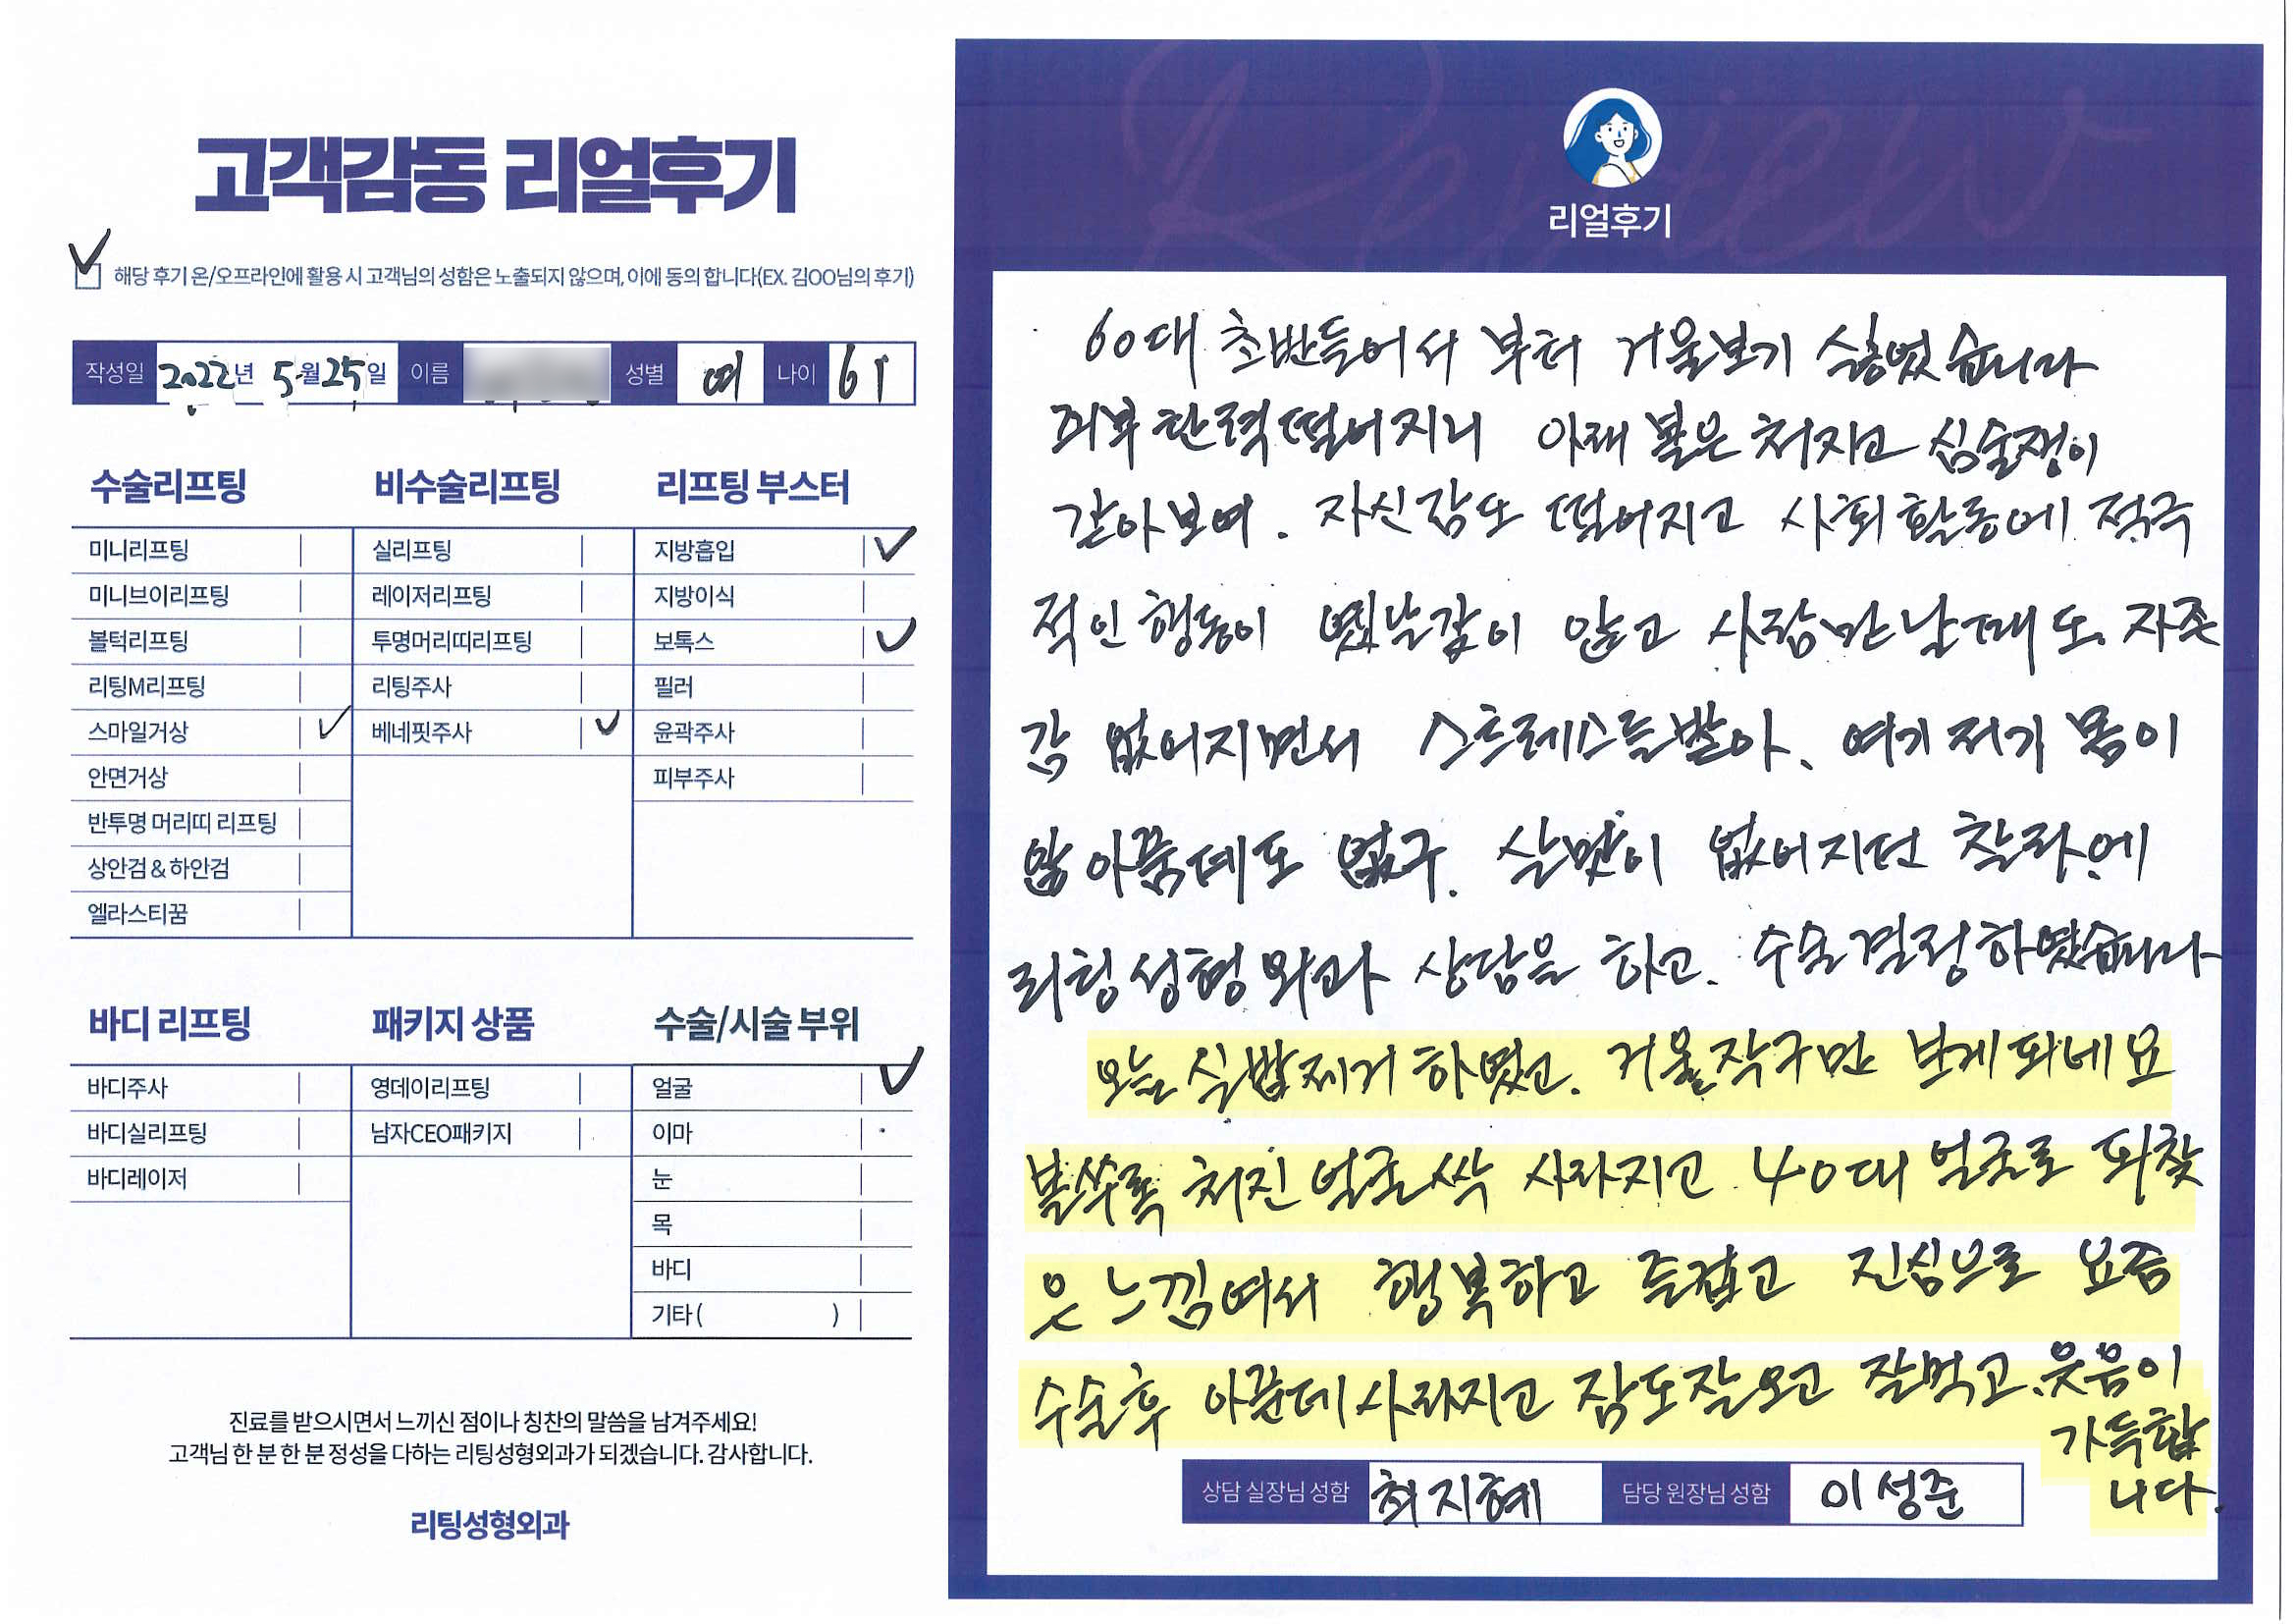 고객감동 리얼후기
해당 후기 온/오프라인에 활용 시 고객님의 성함은 노출되지 않으며, 이에 동의 합니다(EX. 김OO님의 후기)
작성일 2022년 5월 25일 이름 성별 여 나이 61
수술리프팅
미니리프팅
미니브이리프팅
볼턱리프팅
리팅M리프팅
스마일거상
안면거상
반투명 머리띠 리프팅
상안검 & 하안검
엘라스티꿈
비수술리프팅
실리프팅
레이저리프팅
투명머리띠리프팅
리팅주사
베네핏주사
리프팅 부스터
지방흡입
지방이식
보톡스
필러
윤곽주사
피부주사
바디 리프팅
바디주사
바디실리프팅
바디레이저
패키지 상품
영데이리프팅
남자CEO패키지
수술/시술 부위
얼굴
이마
눈
목
바디
기타 ( )
진료를 받으시면서 느끼신 점이나 칭찬의 말씀을 남겨주세요!
고객님 한 분 한 분 정성을 다하는 리팅성형외과가 되겠습니다. 감사합니다.
리팅성형외과
Review
리얼후기
60대 초반들어서 부터 거울보기 싫었습니다
피부탄력떨어지니 아래 볼은 처지고 심술쟁이
같아보여. 자신감도 떨어지고 사회활동에 적극
적인 행동이 옛날같이 않고 사람만날때도. 자존
감 없어지면서 스트레스를받아. 여기저기 몸이
않아픔데도 없구. 살맛이 없어지던 찰라에
리팅성형외과 상담을 하고. 수술결정하였습니다
오늘 실밥제거 하였고. 거울자구만 보게되네요
볼쑤록 처진얼굴싹 사라지고 40대 얼굴로 되찾
은 느낌여서 행복하고 즐겁고 진심으로 요즘
수술후 아픈데사라지고 잠도잘오고 잘먹고.웃음이
가득합
니다.
상담 실장님 성함 최지혜 담당 원장님 성함 이성준